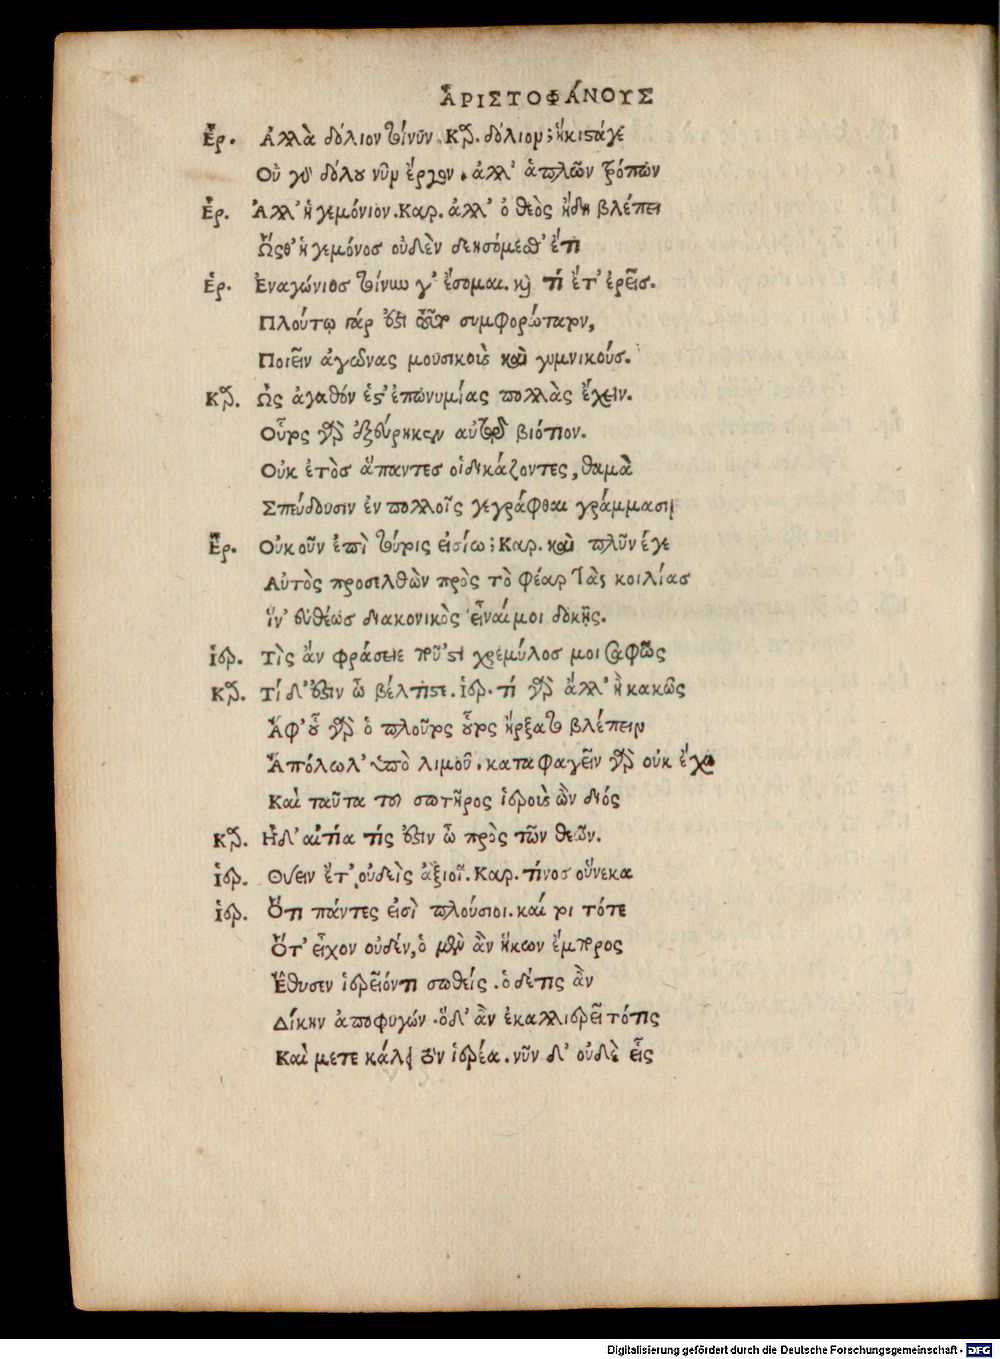 ἈΡΙΣΤΟΦΆΝΟΥΣ
Ἑρ. Ἀλλὰ δόλιον τοίνυν. Καρ. δόλιον; ἥκιστάγε
Οὐ γὰρ δόλου νῦν ἔργον. ἀλλ' ἁπλῶν τρόπων
Ἑρ. Ἀλλ' ἡγεμόνιον. Καρ. ἀλλ' ὁ θεὸς ἤδη βλέπει
Ὥσθ' ἡγεμόνος οὐδὲν δεησόμεσθ' ἔτι
Ἑρ. Ἐναγώνιος τοίνυν γ' ἔσομαι. καὶ τί ἔτ' ἐρεῖς.
Πλούτῳ γάρ ἐστι τοῦτο συμφορώτατον,
Ποιεῖν ἀγῶνας μουσικοὺς καὶ γυμνικούς.
Καρ. Ὡς ἀγαθόν ἐστ' ἐπωνυμίας πολλὰς ἔχειν.
Οὗτος γὰρ ἐξεύρηκεν αὑτῷ βιότιον.
Οὐκ ἐτὸς ἅπαντες οἱ δικάζοντες, θαμὰ
Σπεύδουσιν ἐν πολλοῖς γεγράφθαι γράμμασιν
Ἑρ. Οὐκοῦν ἐπὶ τούτοις εἰσίω; Καρ. καὶ πλῦνέ γε
Αὐτὸς προσελθὼν πρὸς τὸ φρέαρ τὰς κοιλίας
ἵν' εὐθέως διακονικὸς εἶναί μοι δοκῇς.
Ἱερ. Τὶς ἂν φράσειε ποῦ 'στι χρεμύλος μοι σαφῶς
Καρ. Τί δ' ἔστιν ὦ βέλτιστε. Ἱερ. τί γὰρ ἄλλ' ἢ κακῶς
Ἀφ' οὗ γὰρ ὁ πλοῦτος οὗτος ἤρξατο βλέπειν
Ἀπόλωλ' ὑπὸ λιμοῦ. καταφαγεῖν γὰρ οὐκ ἔχω
Καὶ ταῦτα τοῦ σωτῆρος ἱερεὺς ὢν διός
Καρ. Ἡ δ' αἰτία τίς ἔστιν ὦ πρὸς τῶν θεῶν.
Ἱερ. Θύειν ἔτ' οὐδεὶς ἀξιοῖ. Καρ. τίνος οὕνεκα
Ἱερ. Ὅτι πάντες εἰσὶ πλούσιοι. καί τοι τότε
Ὅτ' εἶχον οὐδέν, ὁ μὲν ἂν ἥκων ἔμπορος
Ἔθυσεν ἱερεῖόν τι σωθείς. ὁ δέ τις ἂν
Δίκην ἀποφυγών. ὁ δ' ἂν ἐκαλλιερεῖτό τις
Καὶ μετεκάλει τὸν ἱερέα. νῦν δ' οὐδὲ εἷς
Digitalisierung gefördert durch die Deutsche Forschungsgemeinschaft - DFG